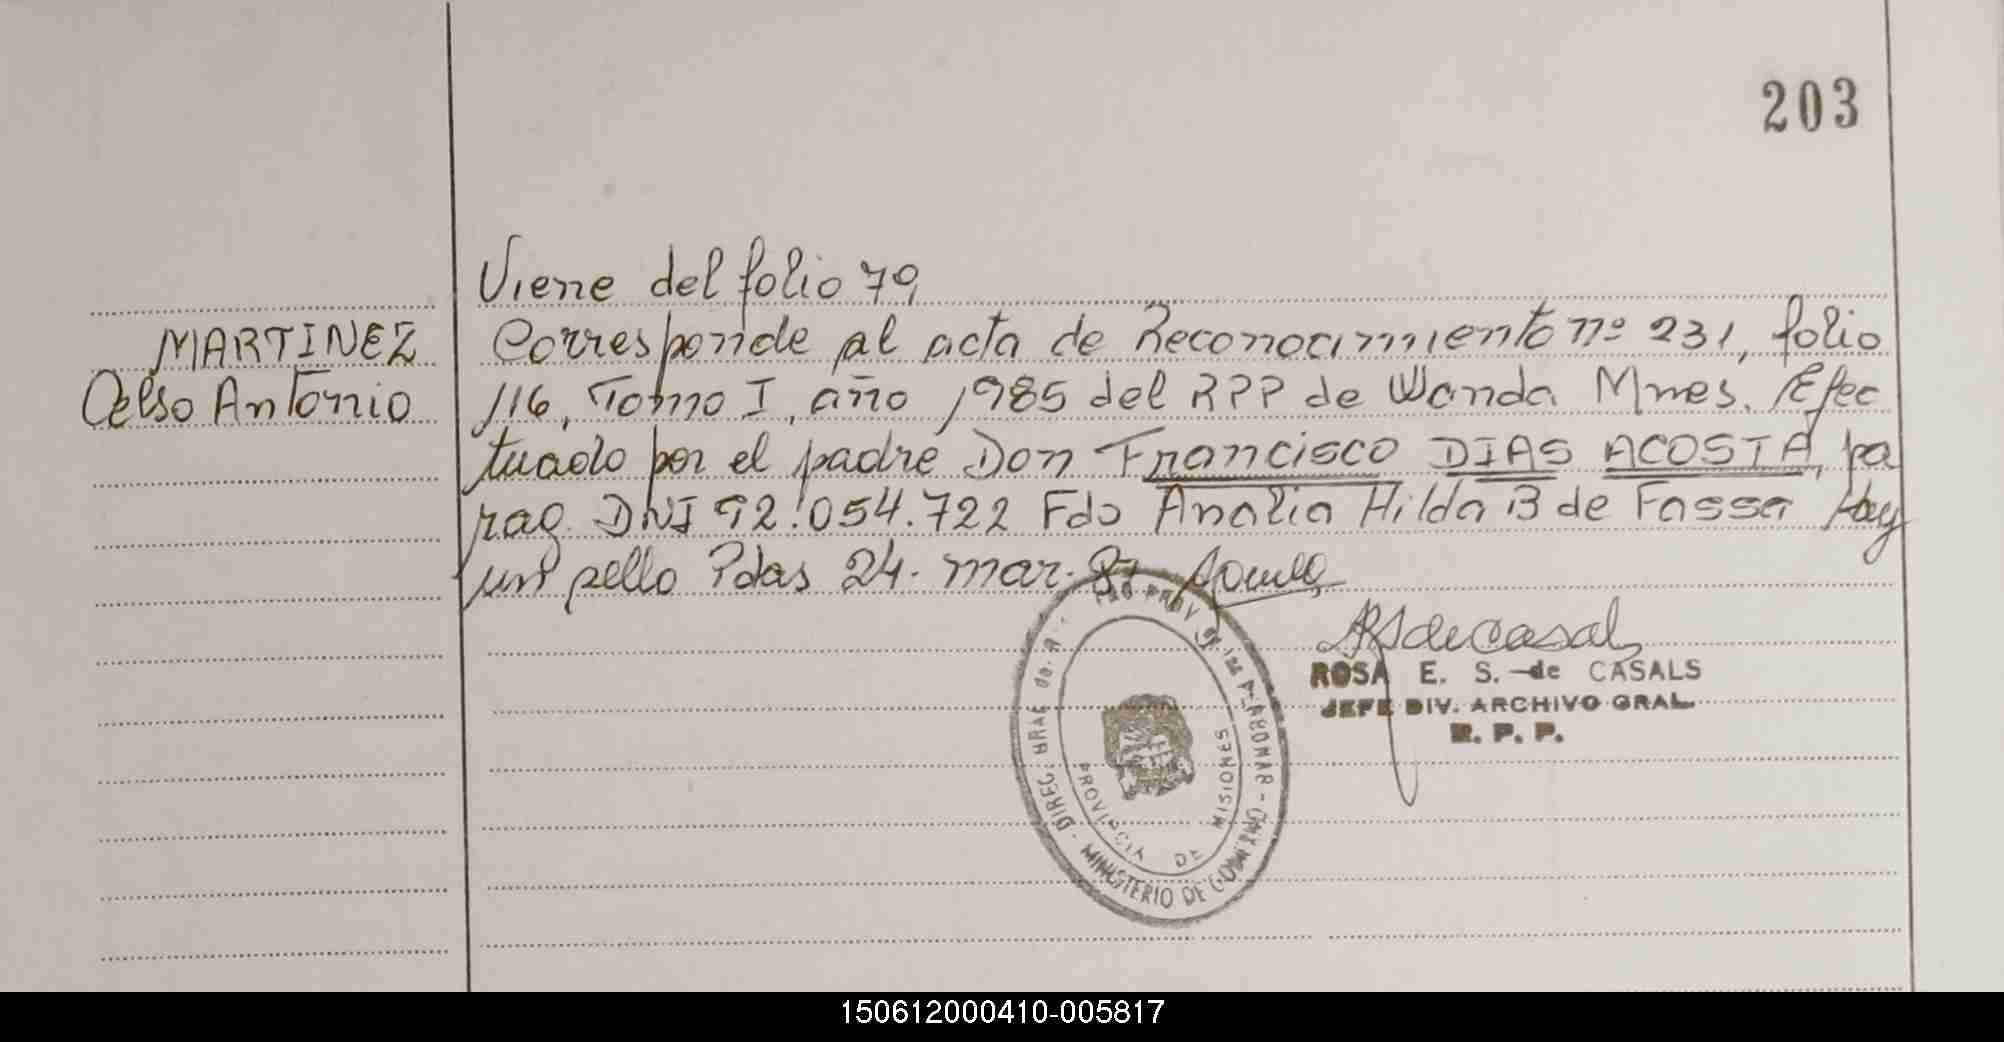 203
Viene del folio 79
MARTINEZ
Celso Antonio
Corresponde al acta de Reconocimiento nº 231, folio
116, Tomo I, año 1985 del RPP de Wanda Mnes. Efec
tuado por el padre Don Francisco DIAS ACOSTA, pa
rag. DNI 92.054.722 Fdo Analia Hilda B de Fassa Hay
un sello Pdas 24. mar.
ROSA E. S. de CASALS
JEFE DIV. ARCHIVO GRAL.
R. P. P.
PROVINCIA DE MISIONES
MINISTERIO DE
150612000410-005817